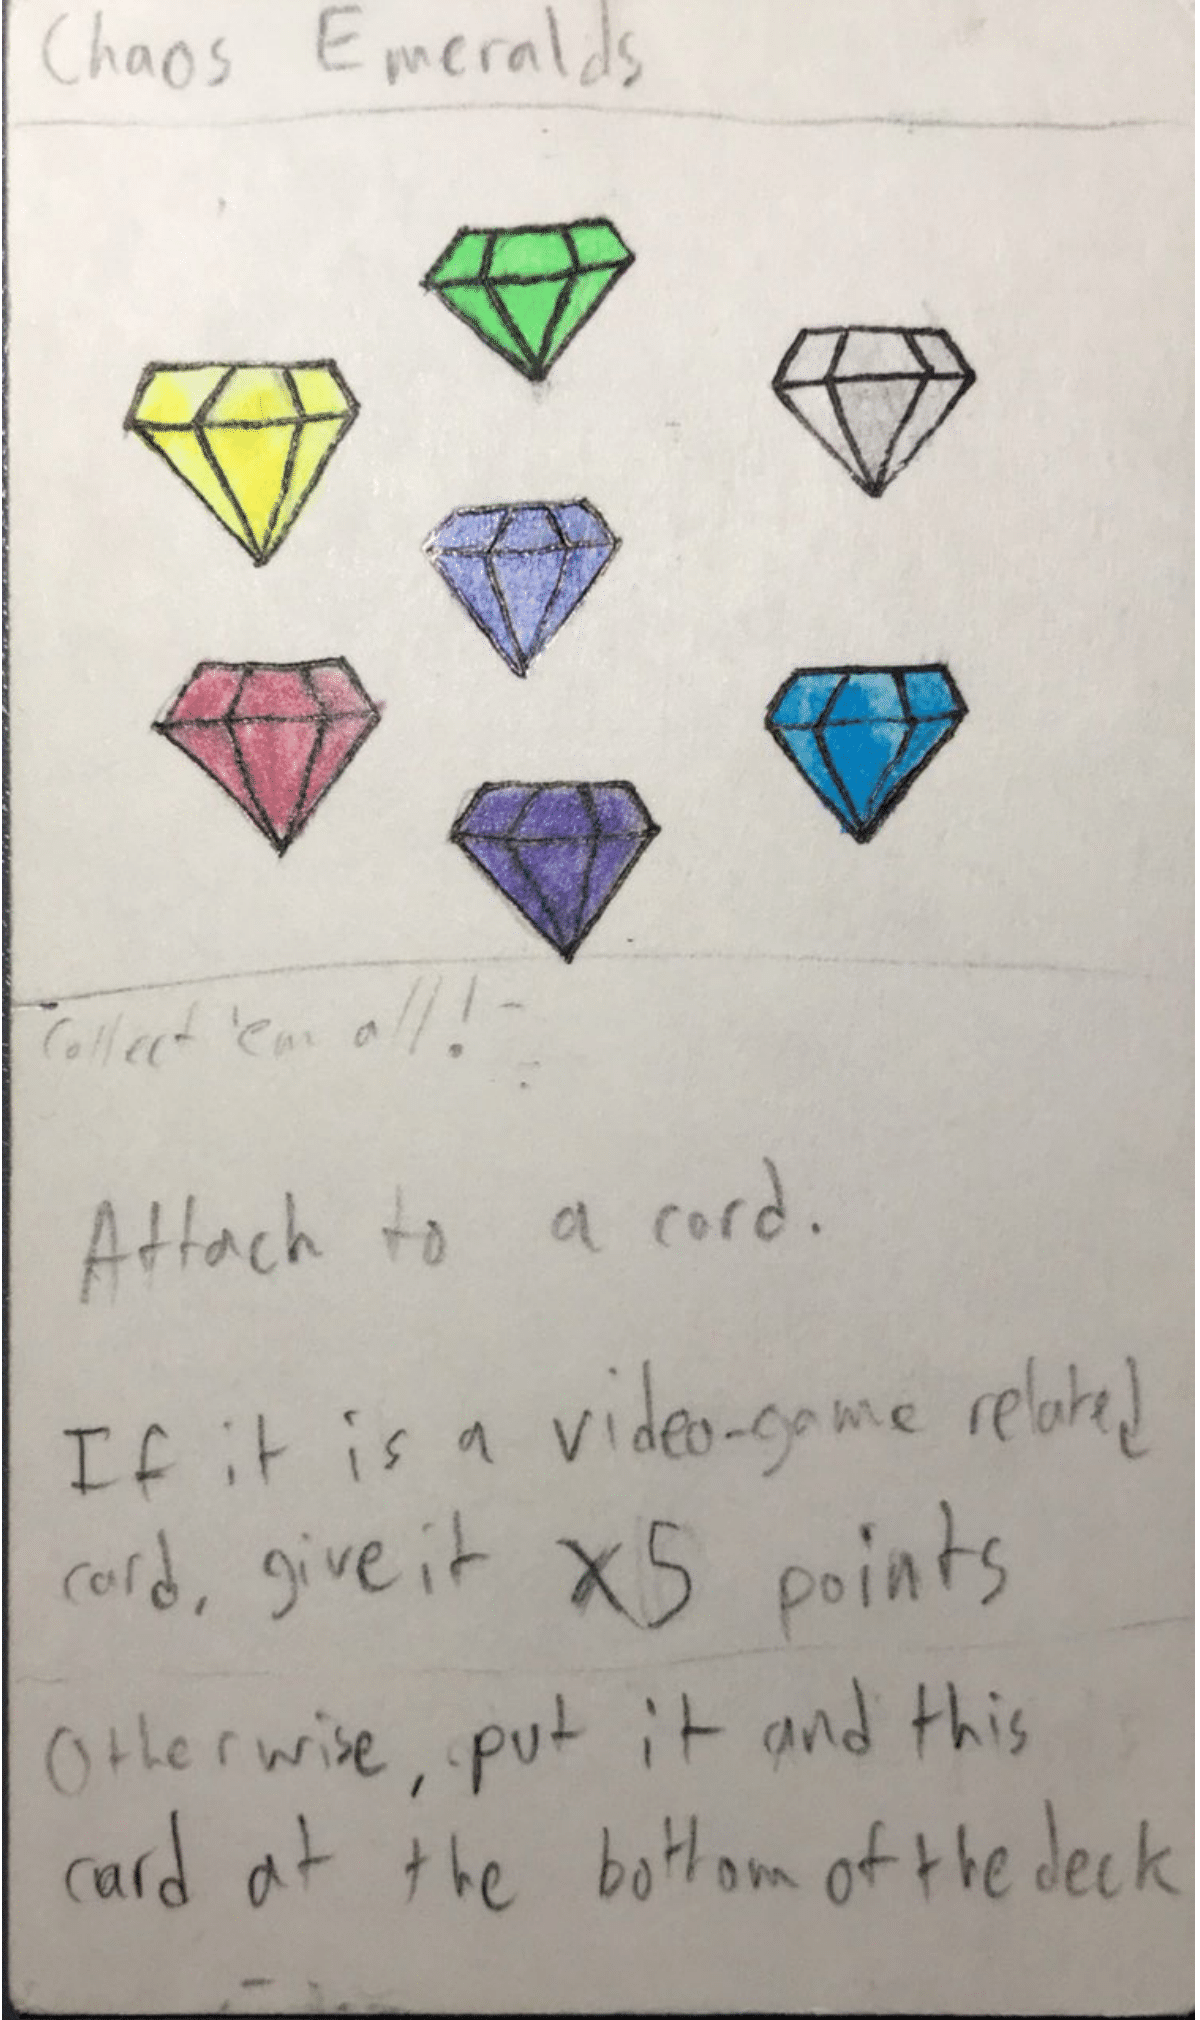 Chaos Emeralds
Collect 'em all!
Attach to a card.
If it is a video-game related
card, give it x5 points
Otherwise, put it and this
card at the bottom of the deck